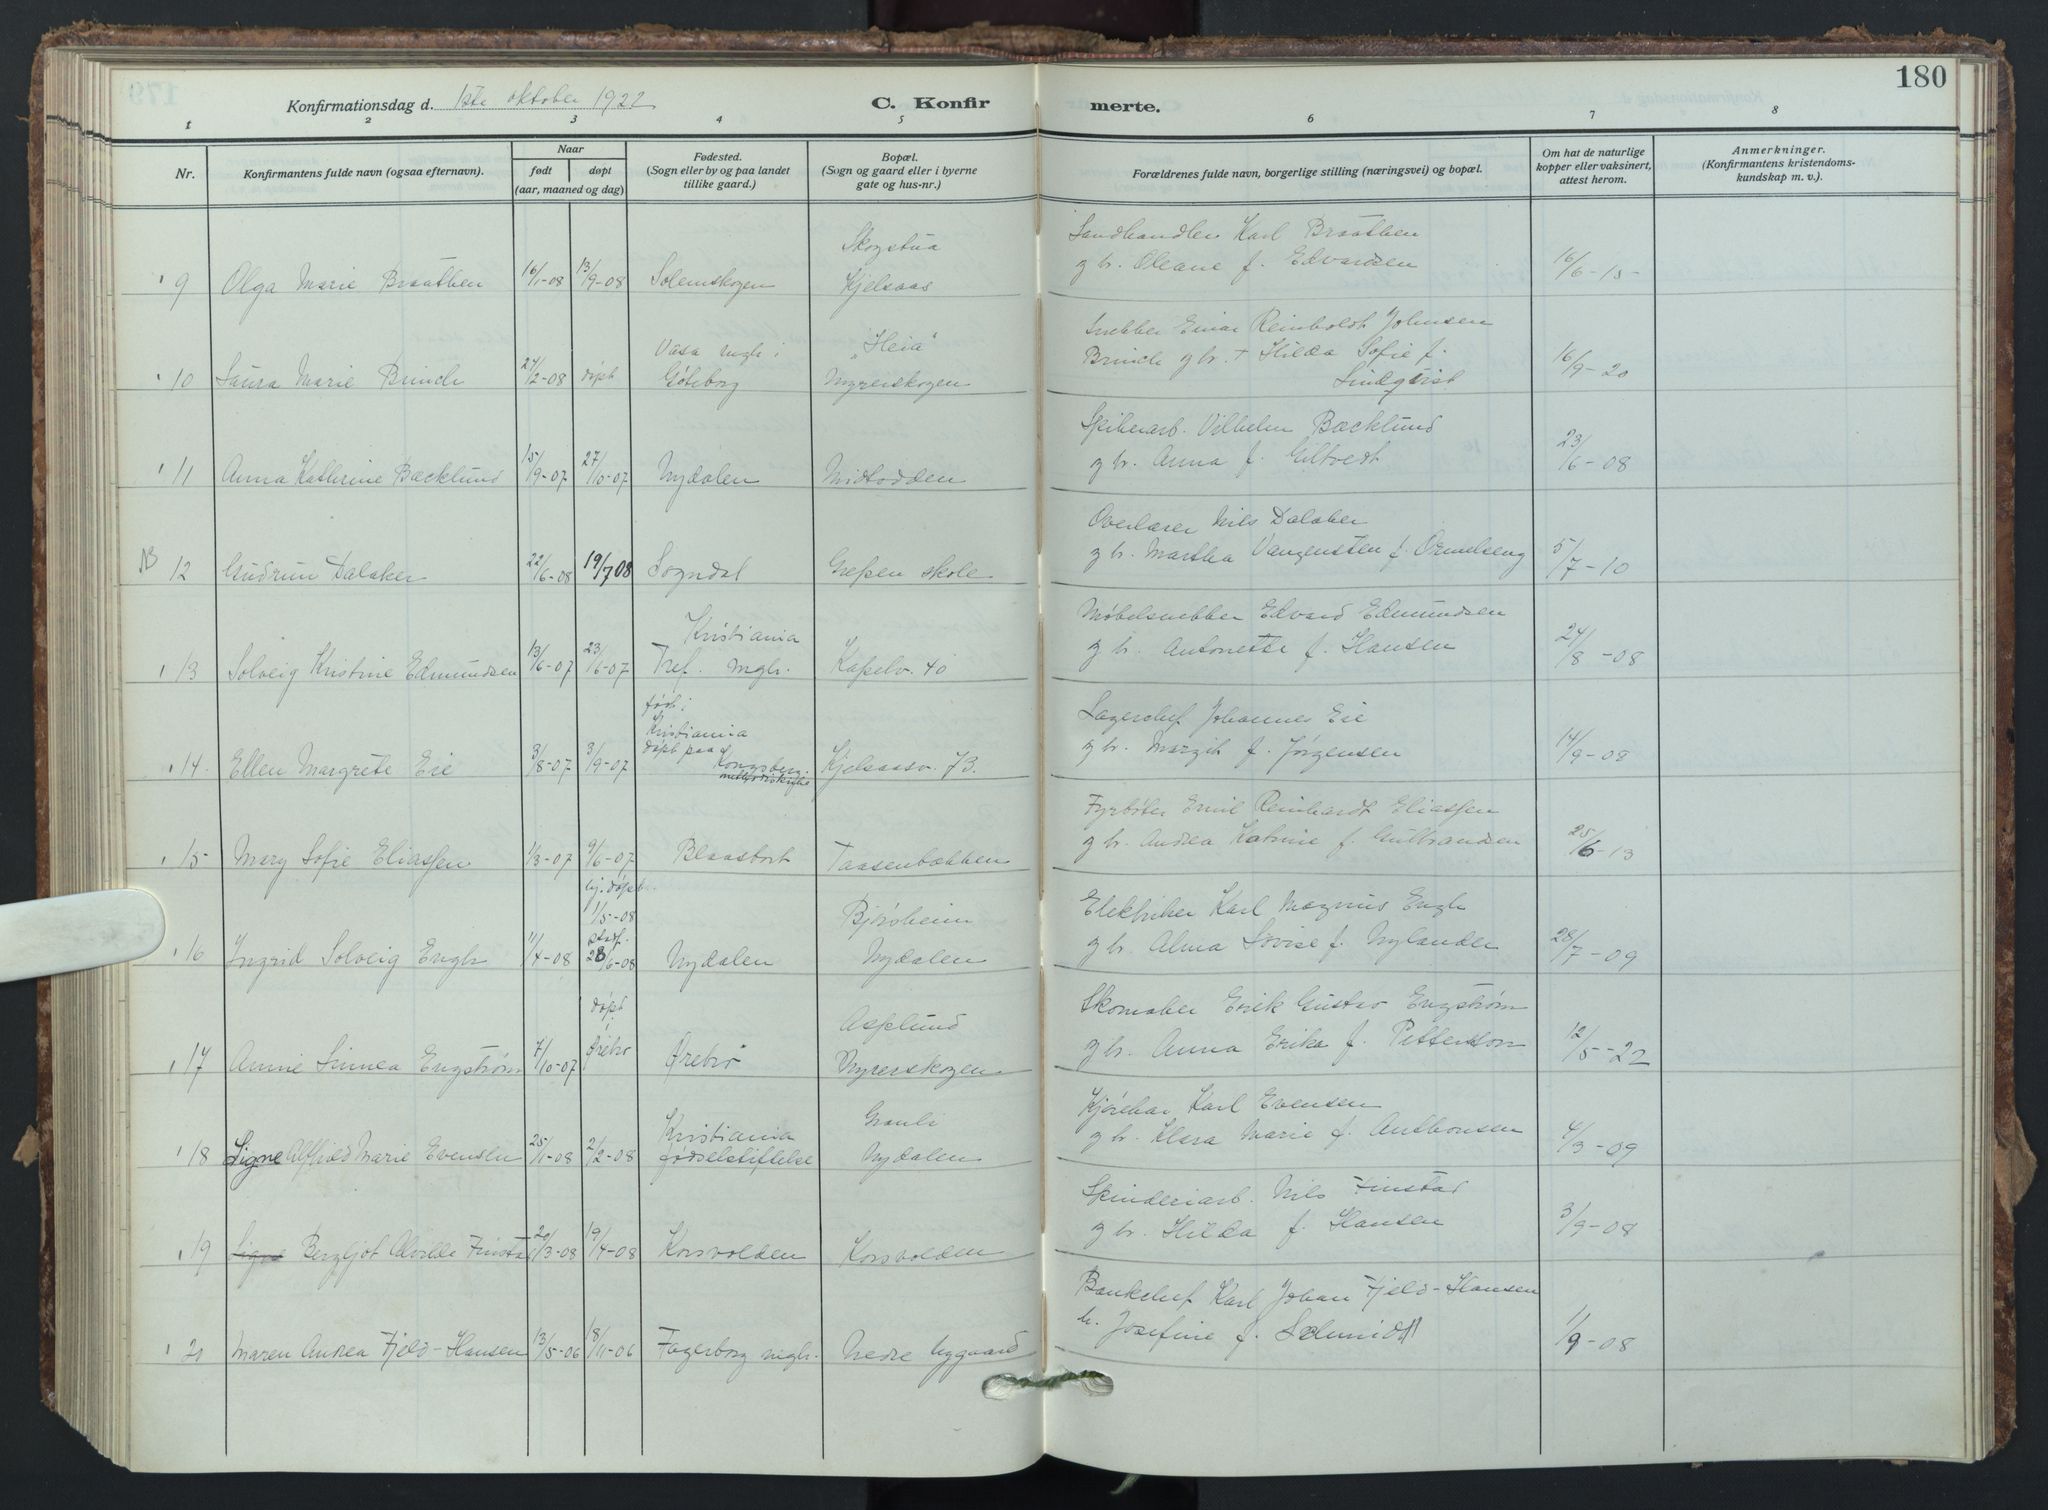 180
Konfirmationsdag d. 1ste oktober 1922
C. Konfir
merte.
1 2 3 4 5 6 7 8
Nr.
Konfirmantens fulde navn (ogsaa efternavn).
Naar
født
døpt
(aar, maaned og dag)
Fødested.
(Sogn eller by og paa landet
tillike gaard.)
Bopæl.
(Sogn og gaard eller i byerne
gate og hus-nr.)
Forældrenes fulde navn, borgerlige stilling (næringsvei) og bopæl.
Om hat de naturlige
kopper eller vaksinert,
attest herom.
Anmerkninger.
(Konfirmantens kristendoms-
kundskap m. v.).
9 Olga Marie Braathen 16/1-08 13/9-08 Solemskogen
Skogstua
Kjelsaas
Landhandler Karl Braathen
g hr. Oleane f. Edvardsen
16/6-15
10 Laura Marie Brinch 27/2-08 døpt
Vasa mgh i
Göteborg
"Heia"
Myrerskogen
Snekker Einar Reinholdt Johnsen
Brinch g hr. + Hilda Sofie f.
Lindqvist
16/9-20
11 Anna Kathrine Bæcklund 15/9-07 27/10-07 Nydalen
Midtodden
Spikerarb. Vilhelm Bæcklund
g hr. Anna f. Giltvedt
23/6-08
12 Gudrun Dalaker 22/6-08 19/7 08 Sogndal
Grefsen skole
Overlærer Nils Dalaker
g hr. Martha Vangensten f. Ormelseng
5/7-10
13 Solveig Kristine Edmundsen 13/6-07 23/6-07
Kristiania
Tref. mgh.
Kapelv. 40
Møbelsnekker Edvard Edmundsen
g hr. Antonette f. Hansen
24/8-08
14. Ellen Margrete Eie 3/8-07 3/9-07
født i
Kristiania
døpt paa
Kongsberg.
methodistkirke
Kjelsaasv. 73.
Lagerchef Johannes Eie
g hr. Margit f. Jørgensen
14/9-08
15 Mary Sofie Eliassen 1/3-07 9/6-07
Taasenbækken
Fyrbøter Emil Reinhardt Eliassen
g hr. Andrea Katrine f. Gulbrandsen
25/6-13
16 Ingrid Solveig Engh 11/4-08
hj. døpt
1/5-08
stadf.
28/6-08
Nydalen
Bjørsheim
Nydalen
Elektriker Karl Magnus Engh
g hr. Alma Lovise f. Nylander
28/7-09
17 Annie Linnea Engstrøm 7/10-07
døpt
i
Ørebro
Ørebro
Asplund
Myrerskogen
Skomaker Erik Gustav Engstrøm
g hr. Anna Erika f. Petterson
12/5-22
18 Signe Alfhild Marie Evensen 25/1-08 2/2-08
Kristiania
fødselstiftelse
Granli
Nydalen
Kjørekar Karl Evensen
g hr. Klara Marie f. Anthonsen
4/3-09
19 Signe Bergljot Alvilde Finstad 20/3-08 19/4-08 Korsvolden
Korsvolden
Spinderiarb. Nils Finstad
g hr. Hilda f. Hansen
3/9-08
20 Maren Andrea Fjeld-Hansen 13/5-06 18/11-06 Fagerborg mgh.
Nedre bygaard
Bankchef Karl Johan Fjeld-Hansen
h. Josefine f. Schmidt
1/9-08